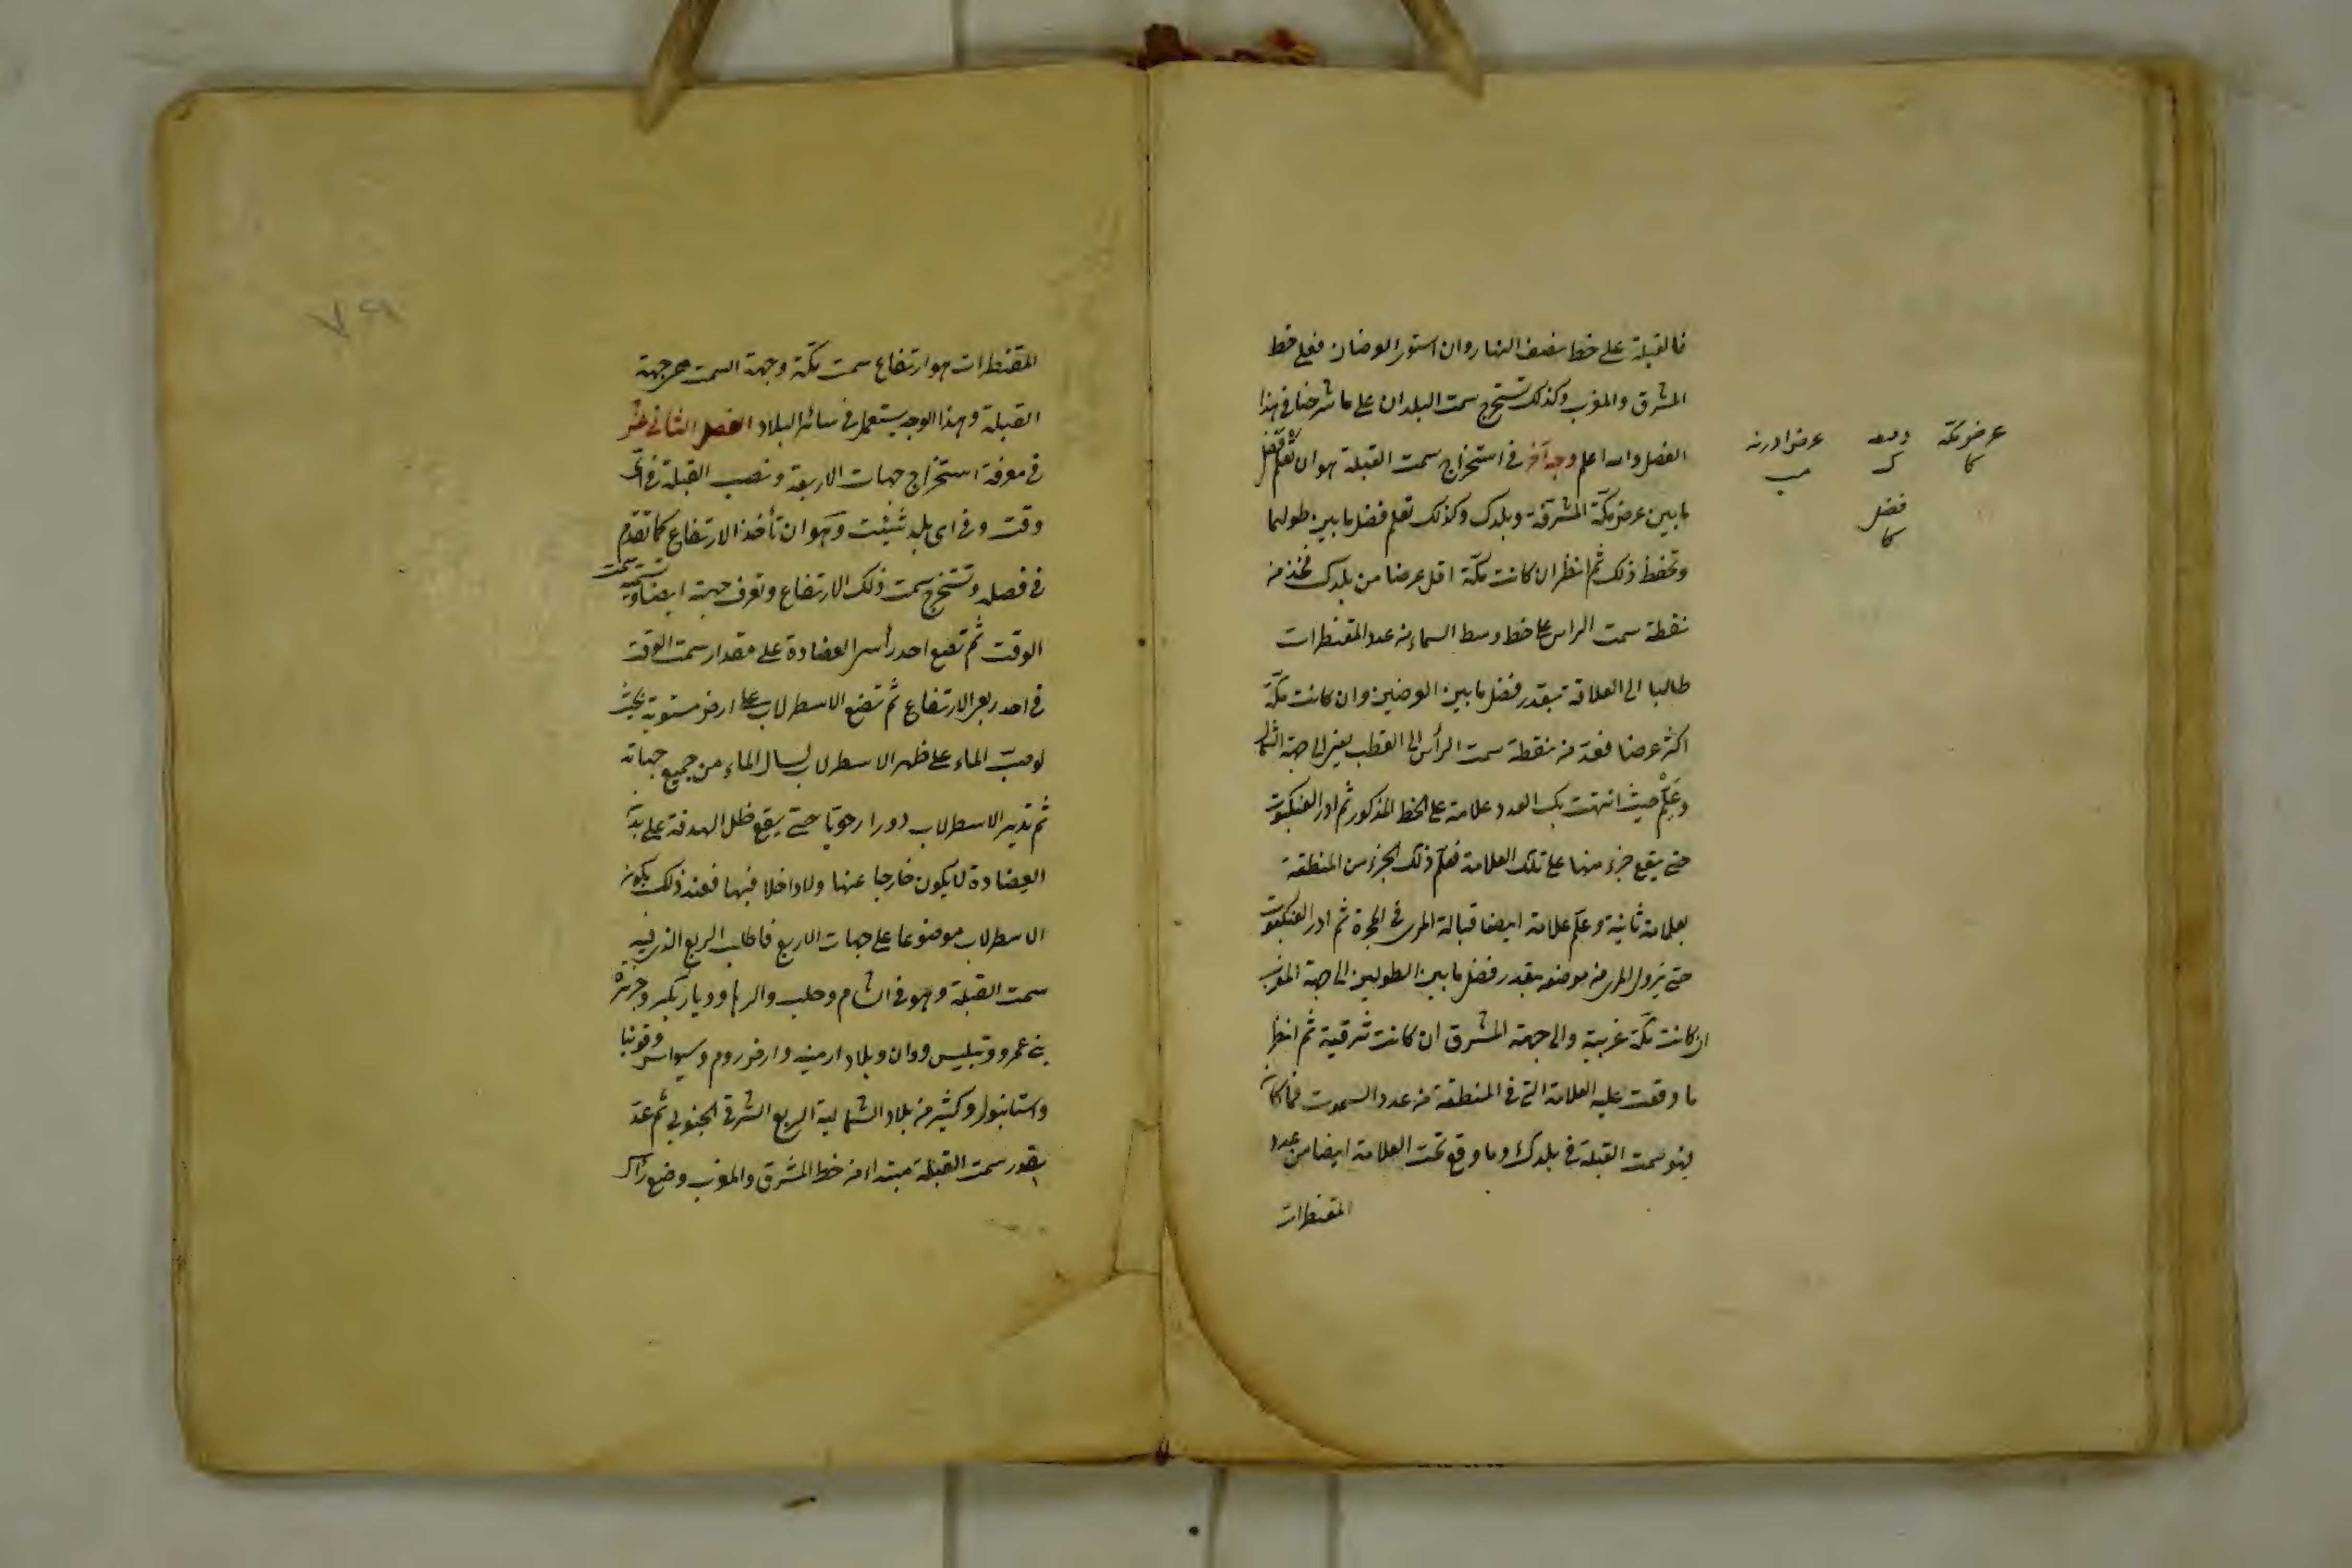 فالقبلة على خط نصف النهار وان استوى العرضان فعلى خط
المشرق والمغرب وكذلك تستخرج سمت البلدان على ما شرحنا في هذا
الفصل والله اعلم وجه آخر في استخراج سمت القبلة هو ان تعلم فضل
ما بين عرض مكة المشرفة وبلدك وكذلك تعلم فضل ما بين طولهما
وتحفظ ذلك ثم انظر ان كانت مكة اقل عرضا من بلدك فخذ من
نقطة سمت الراس على خط وسط السماء من عدد المقنطرات
طالبا الى العلاقة بقدر فضل ما بين العرضين وان كانت مكة
اكثر عرضا فعد من نقطة سمت الرأس الى القطب يعني الى جهة الشمال
وعلّم حيث انتهت بك العدد علامة على الخط المذكور ثم ادر العنكبوت
حتى يقع جزء منها على تلك العلامة فعلّم ذلك الجزء من المنطقة
بعلامة ثانية وعلّم علامة ايضا قبالة المرى في الحجرة ثم ادر العنكبوت
حتى يزول المرى من موضعه بقدر فضل ما بين الطولين الى جهة المغرب
ان كانت مكة غربية والى جهة المشرق ان كانت شرقية ثم انظر
ما وقعت عليه العلامة التي في المنطقة من عدد السموت فما كان
فهو سمت القبلة في بلدك وما وقع تحت العلامة ايضا من عدد
المقنطرات
عرض مكة
كا
عرض ادرنه
مب
فضل
كا
المقنطرات هو ارتفاع سمت مكة وجهة السمت هي جهة
القبلة وهذا الوجه يستعمل في سائر البلاد الفصل الثاني عشر
في معرفة استخراج جهات الاربعة ونصب القبلة في اى
وقت وفي اى بلد شئت وهو ان تأخذ الارتفاع كما تقدم
في فصله وتستخرج سمت ذلك الارتفاع وتعرف جهته ايضا وتسميه سمت
الوقت ثم تضع احد رأسى العضادة على مقدار سمت الوقت
في احد ربعى الارتفاع ثم تضع الاسطرلاب على ارض مستوية بحيث
لو صبّ الماء على ظهر الاسطرلاب لسال الماء من جميع جهاته
ثم تدير الاسطرلاب دورا رحويا حتى يقع ظل الهدفة على بدن
العضادة لا يكون خارجا عنها ولا داخلا فيها فعند ذلك يكون
الاسطرلاب موضوعا على جهات الاربع فاطلب الربع الذى فيه
سمت القبلة وهو في الشام وحلب والرها وديار بكر وجزيرة
بنى عمرو وتبليس ووان وبلاد ارمنيه وارض روم وسيواس وقونيا
واستانبول وكثير من بلاد الشمالية الربع الشرقى الجنوبى ثم عد
بقدر سمت القبلة مبتداء من خط المشرق والمغرب وضع رأس